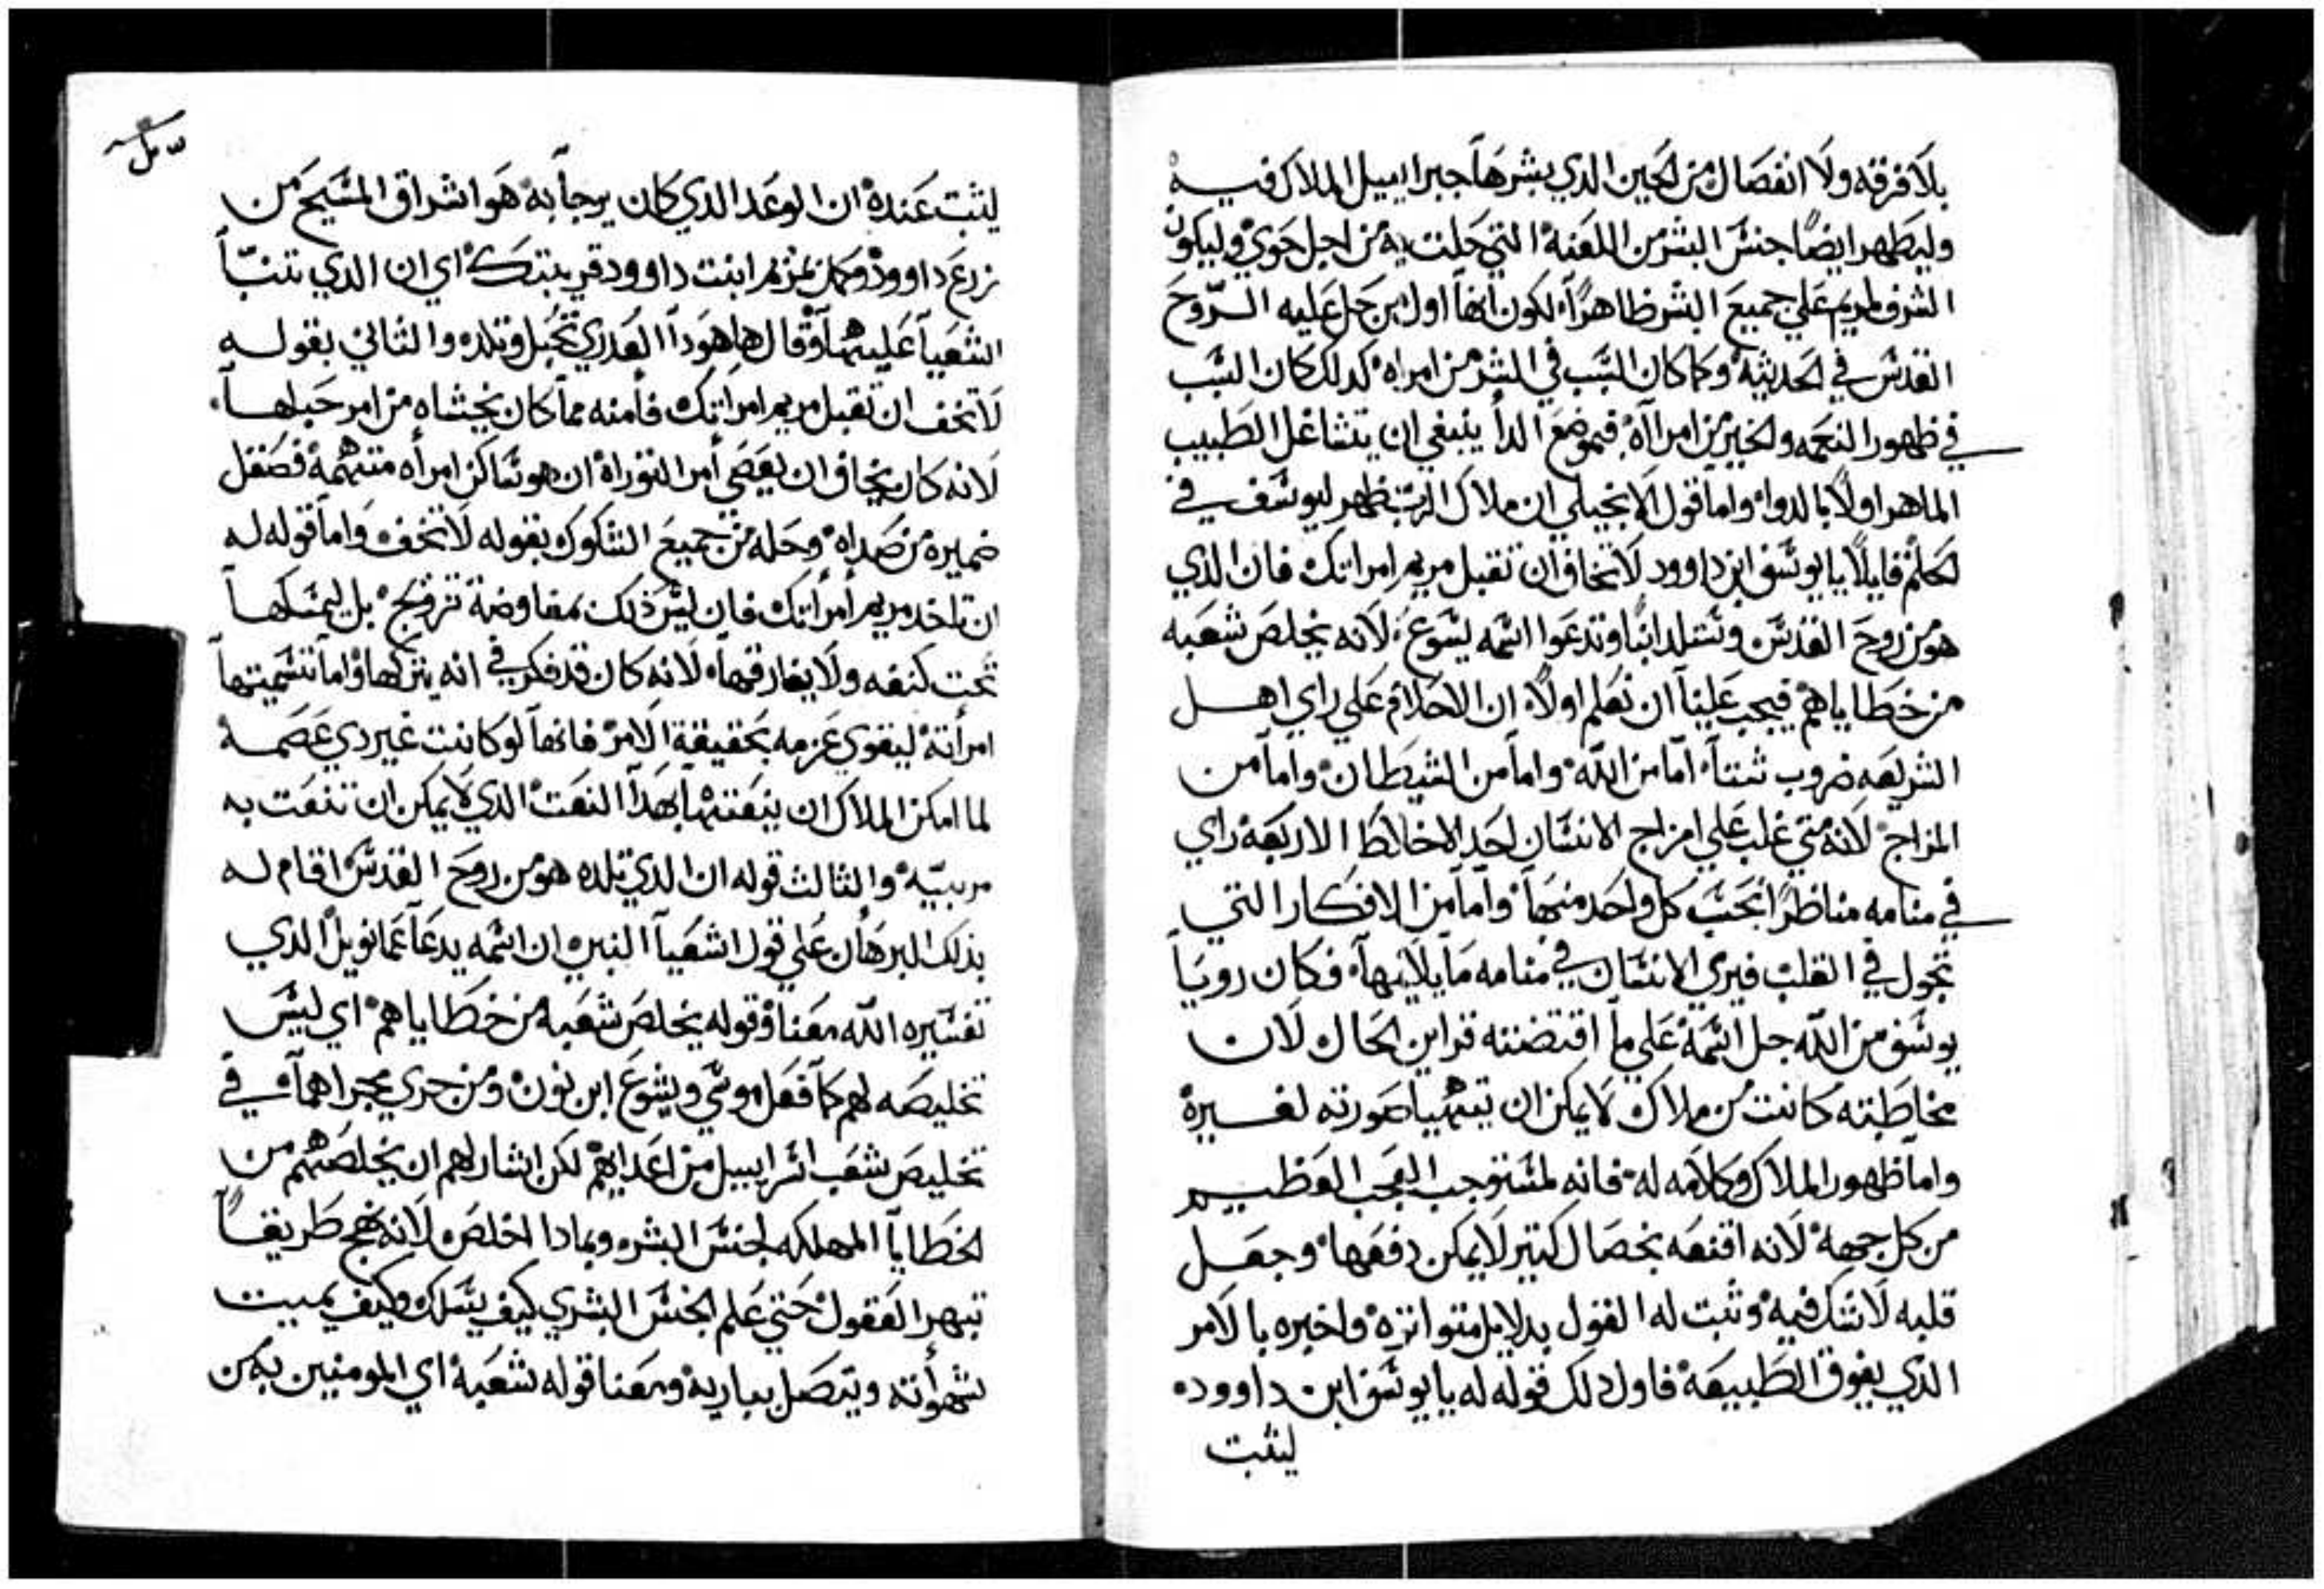 بلا فرقه ولا انفصال من الحين الدي بشرها جبراييل الملاك فيه
وليطهر ايضًا جنس البشر من اللعنه التي حلت به من اجل حوي وليكون
الشرف لمريم علي جميع البشر ظاهرًا لكون انها اول من حل عليه الروح
القدس في الحديثه وكما كان السبب في الشر من امراه كدلك كان السبب
في ظهور النعمه والخير من امراآه فموضع الدأ ينبغي ان يتشاغل الطبيب
الماهر اولًا بالدواء واما قول الانجيلي ان ملاك الرب ظهر ليوسف في
الحلم قايلًا يا يوسف ابن داوود لا تخاف ان تقبل مريم امراتك فان الدي
هو من روح القدس وستلد ابنًا وتدعوا اسمه يسوع لانه يخلص شعبه
من خطاياهم فيجب علينا ان نعلم اولًا ان الاحلام علي راي اهل
الشريعه ضروب شتا اما من الله واما من الشيطان واما من
المزاج لانه متي غلب علي امزاج الانسان احد الاخلاط الاربعه راي
في منامه مناظرًا بحسب كل واحد منها واما من الافكار التي
تجول في القلب فيري الانسان في منامه ما يلايمها فكان رويا
يوسف من الله جل اسمه علي ما اقتضته قراين الحال لان
مخاطبته كانت من ملاك لا يمكن ان تتهيا صورته لغيره
واما ظهور الملاك وكلامه له فانه لمستوجب العجب العظيم
من كل جهه لانه اقنعه بخصال كتير لا يمكن دفعها وجعل
قلبه لا شك فيه وثبت له القول بدلايل متواتره واخبره بالامر
الذي يفوق الطبيعه فاول دلك قوله له يا يوسف ابن داوود
ليثبت
ليثبت عنده ان الوعد الدي كان يرجا به هو اشراق المسيح من
زرع داوود وكان مريم ابنت داوود قريبتك اي ان الدي تنبّا
اشعيا عليهما وقال ها هودا العدري تحبل وتلد والتاني بقوله
لا تخف ان تقبل مريم امراتك فأمنه مما كان يخشاه من امر حبلها
لانه كان يخاف ان يعصي أمر التوراه ان هو ساكن امرأه متهمه فصقل
ضميره من صداه وحله من جميع الشكوك بقوله لا تخف واما قوله له
ان تاخد مريم أمرأتك فان ليس ذلك بمفاوضة تزويج بل ليمسكها
تحت كنفه ولا يفارقها لانه كان قد فكر في انه يتركها واما تسميتها
امرأته ليقوي عزمه بحقيقة الامر فانها لو كانت غير دي عصمه
لما امكن الملاك ان ينعتها بهدا النعت الدي لا يمكن ان تنعت به
مريبيّه والثالث قوله ان الدي تلده هو من روح القدس اقام له
بذلك البرهان علي قول اشعيا النبي ان اسمه يدعا عمانويل الدي
تفسيره الله معنا وقوله يخلص شعبه من خطاياهم اي ليس
تخليصه لهم كما فعل موسي ويشوع ابن نون ومن جري مجراهما في
تخليص شعب اسراييل من اعدايهم لكن اشار لهم ان يخلصهم من
الخطايا المهلكه لجنس البشر وبمادا اخلص لانه نهج طريقًا
تبهر العقول حتي علم الجنس البشري كيف يسلك وكيف يميت
شهوأته ويتصل بباريه ومعنا قوله شعبه اي المومنين به من